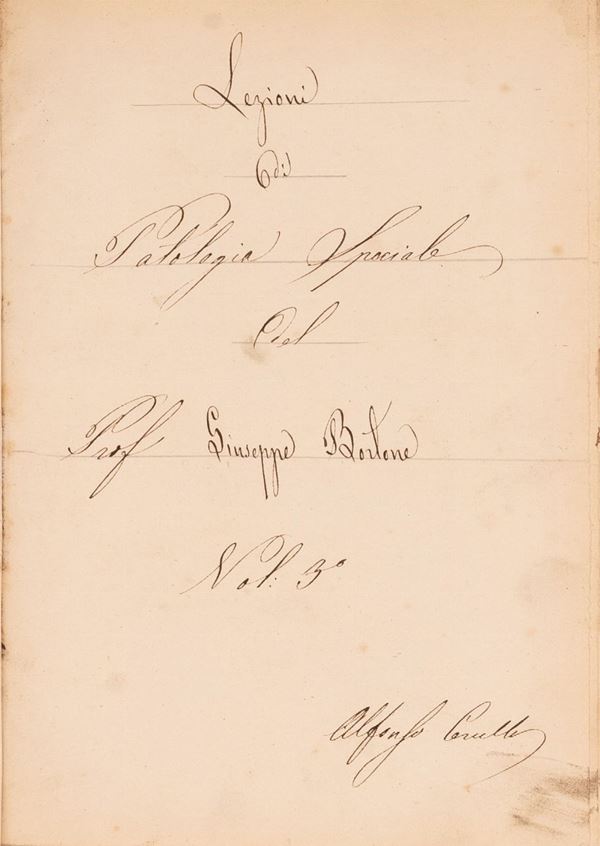 Lezioni
di
Patologia Speciale
del
Prof Giuseppe Bortone
Vol: 3º
Alfonso